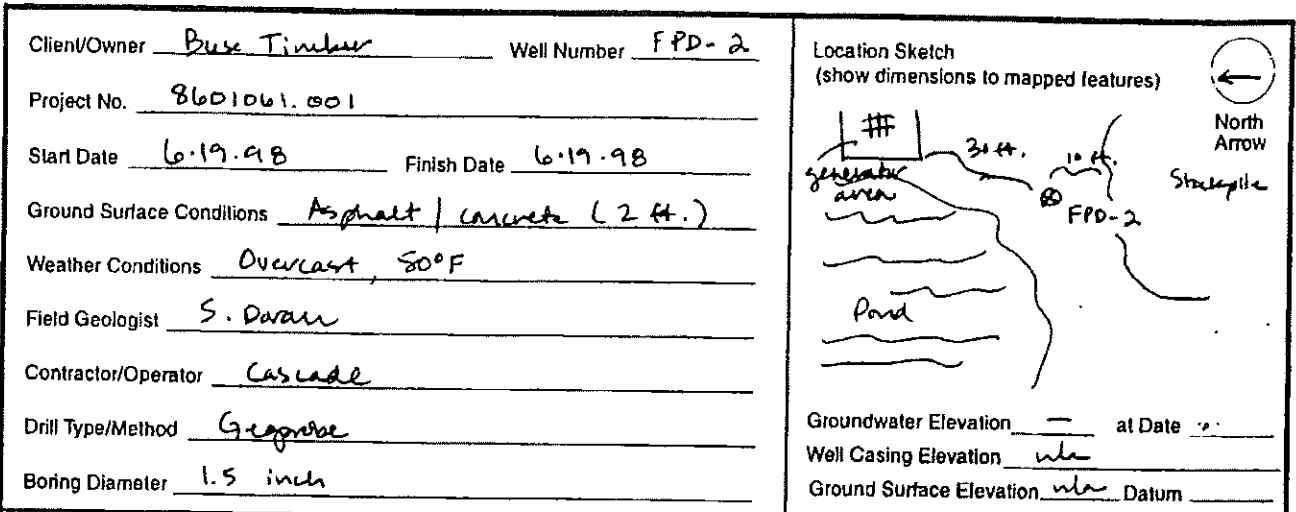 Client/Owner Buse Timber Well Number FPD-2
Project No. 8601061.001
Start Date 6.19.98 Finish Date 6.19.98
Ground Surface Conditions Asphalt / concrete (2 ft.)
Weather Conditions Overcast, 50°F
Field Geologist S.
Contractor/Operator Cascade
Drill Type/Method Geoprobe
Boring Diameter 1.5 inch
Location Sketch
(show dimensions to mapped features)
North
Arrow
30 ft.
10 ft.
generator
area
Stockpile
FPD-2
Pond
Groundwater Elevation — at Date
Well Casing Elevation n/a
Ground Surface Elevation n/a Datum